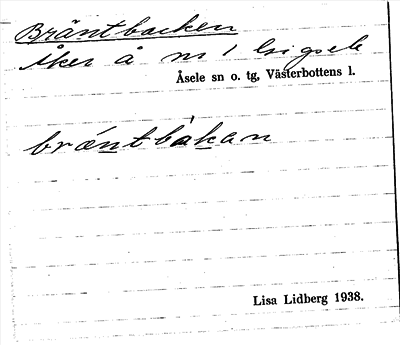 Bräntbacken
Åker å nr 1 Insjösele
Åsele sn o. tg, Västerbottens l.
bræntbakan
Lisa Lidberg 1938.